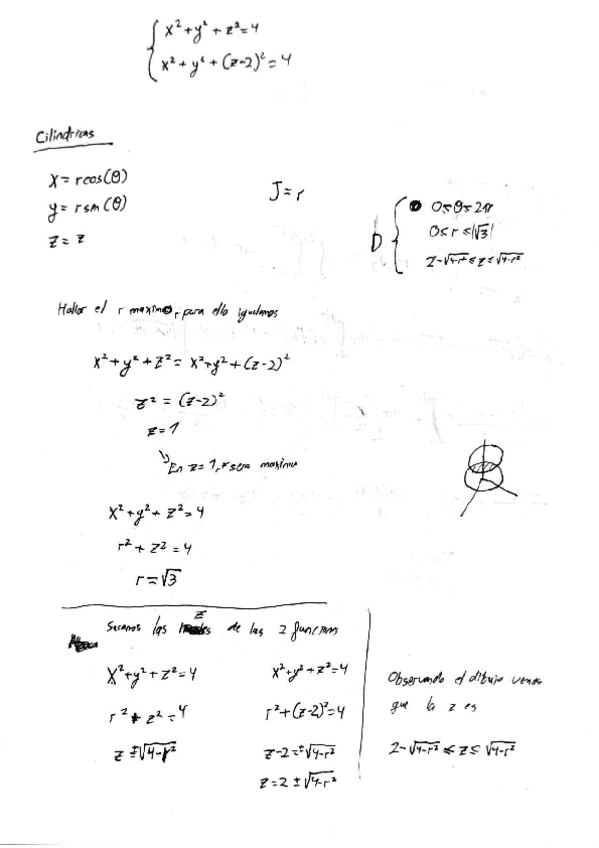 x² + y² + z² = 4
x² + y² + (z-2)² = 4
Cilindricas
x = r cos(θ)
y = r sin(θ)
z = z
J = r
D
0 ≤ θ ≤ 2π
0 ≤ r ≤ |√3|
2-√4-r² ≤ z ≤ √4-r²
Hallar el r maximo, para ello igualamos
x² + y² + z² = x² + y² + (z-2)²
z² = (z-2)²
z = 1
En z = 1, r sera maximo
x² + y² + z² = 4
r² + z² = 4
r = √3
Sacamos las z de las 2 funciones
x² + y² + z² = 4
r² + z² = 4
z = ±√4-r²
x² + y² + z² = 4
r² + (z-2)² = 4
z-2 = ±√4-r²
z = 2 ± √4-r²
Observando el dibujo vemos
que la z es
2-√4-r² ≤ z ≤ √4-r²